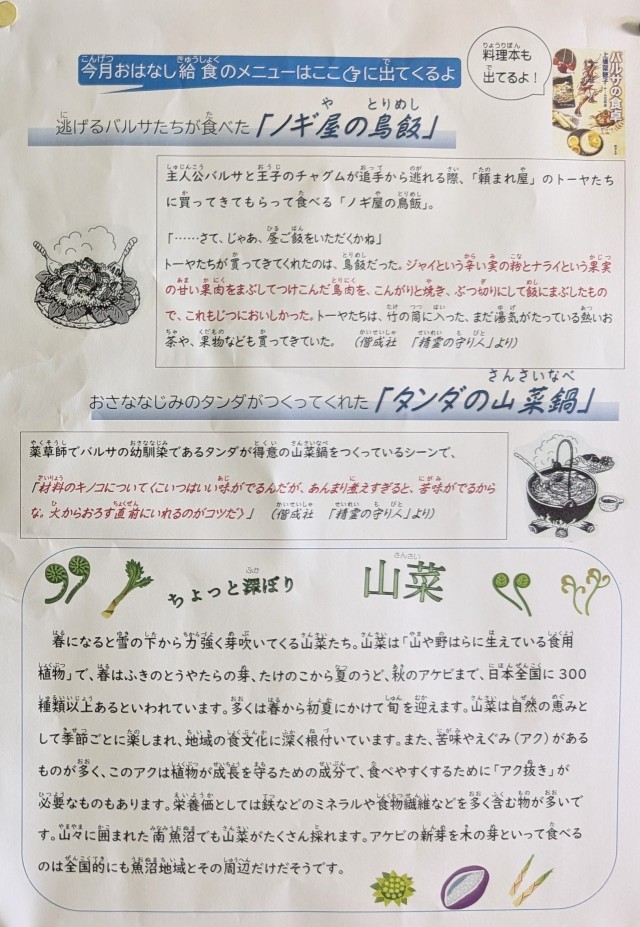 今月おはなし給食のメニューはここ☞に出てくるよ
料理本も
出てるよ！
バルサの食卓
上橋菜穂子
逃げるバルサたちが食べた「ノギ屋の鳥飯」
主人公バルサと王子のチャグムが追手から逃れる際、「頼まれ屋」のトーヤたち
に買ってきてもらって食べる「ノギ屋の鳥飯」。
「……さて、じゃあ、昼ご飯をいただくかね」
トーヤたちが買ってきてくれたのは、鳥飯だった。ジャイという辛い実の粉とナライという果実
の甘い果肉をまぶしてつけこんだ鳥肉を、こんがりと焼き、ぶつ切りにして飯にまぶしたもの
で、これもじつにおいしかった。トーヤたちは、竹の筒に入った、まだ湯気がたっている熱いお
茶や、果物なども買ってきていた。（偕成社　「精霊の守り人」より）
おさななじみのタンダがつくってくれた「タンダの山菜鍋」
薬草師でバルサの幼馴染であるタンダが得意の山菜鍋をつくっているシーンで、
「材料のキノコについてくこいつはいい味がでるんだが、あんまり煮えすぎると、苦味がでるから
な。火からおろす直前にいれるのがコツだ〉」（偕成社　「精霊の守り人」より）
ちょっと深ぼり　山菜
春になると雪の下から力強く芽吹いてくる山菜たち。山菜は「山や野はらに生えている食用
植物」で、春はふきのとうやたらの芽、たけのこから夏のうど、秋のアケビまで、日本全国に300
種類以上あるといわれています。多くは春から初夏にかけて旬を迎えます。山菜は自然の恵みと
して季節ごとに楽しまれ、地域の食文化に深く根付いています。また、苦味やえぐみ（アク）がある
ものが多く、このアクは植物が成長を守るための成分で、食べやすくするために「アク抜き」が
必要なものもあります。栄養価としては鉄などのミネラルや食物繊維などを多く含む物が多いで
す。山々に囲まれた南魚沼でも山菜がたくさん採れます。アケビの新芽を木の芽といって食べる
のは全国的にも魚沼地域とその周辺だけだそうです。